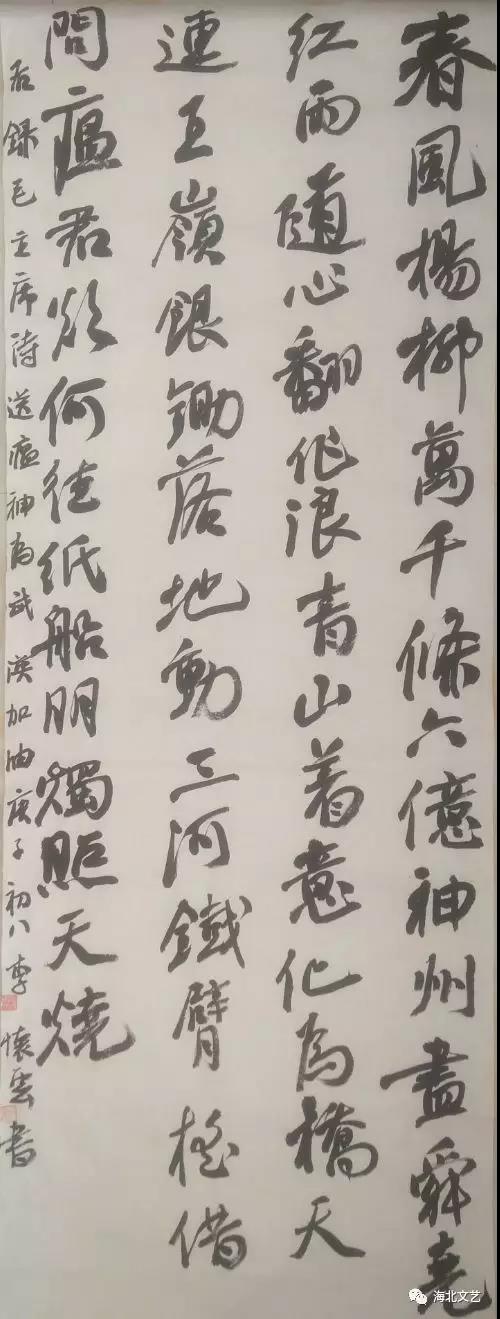 春風楊柳萬千條六億神州盡舜堯
红雨隨心翻作浪青山着意化為橋天
連五嶺銀鋤落地動三河鐵臂搖借
問瘟君欲何往纸船明燭照天燒
右録毛主席诗送瘟神為武漢加油庚子初八李懷雲書
海北文艺